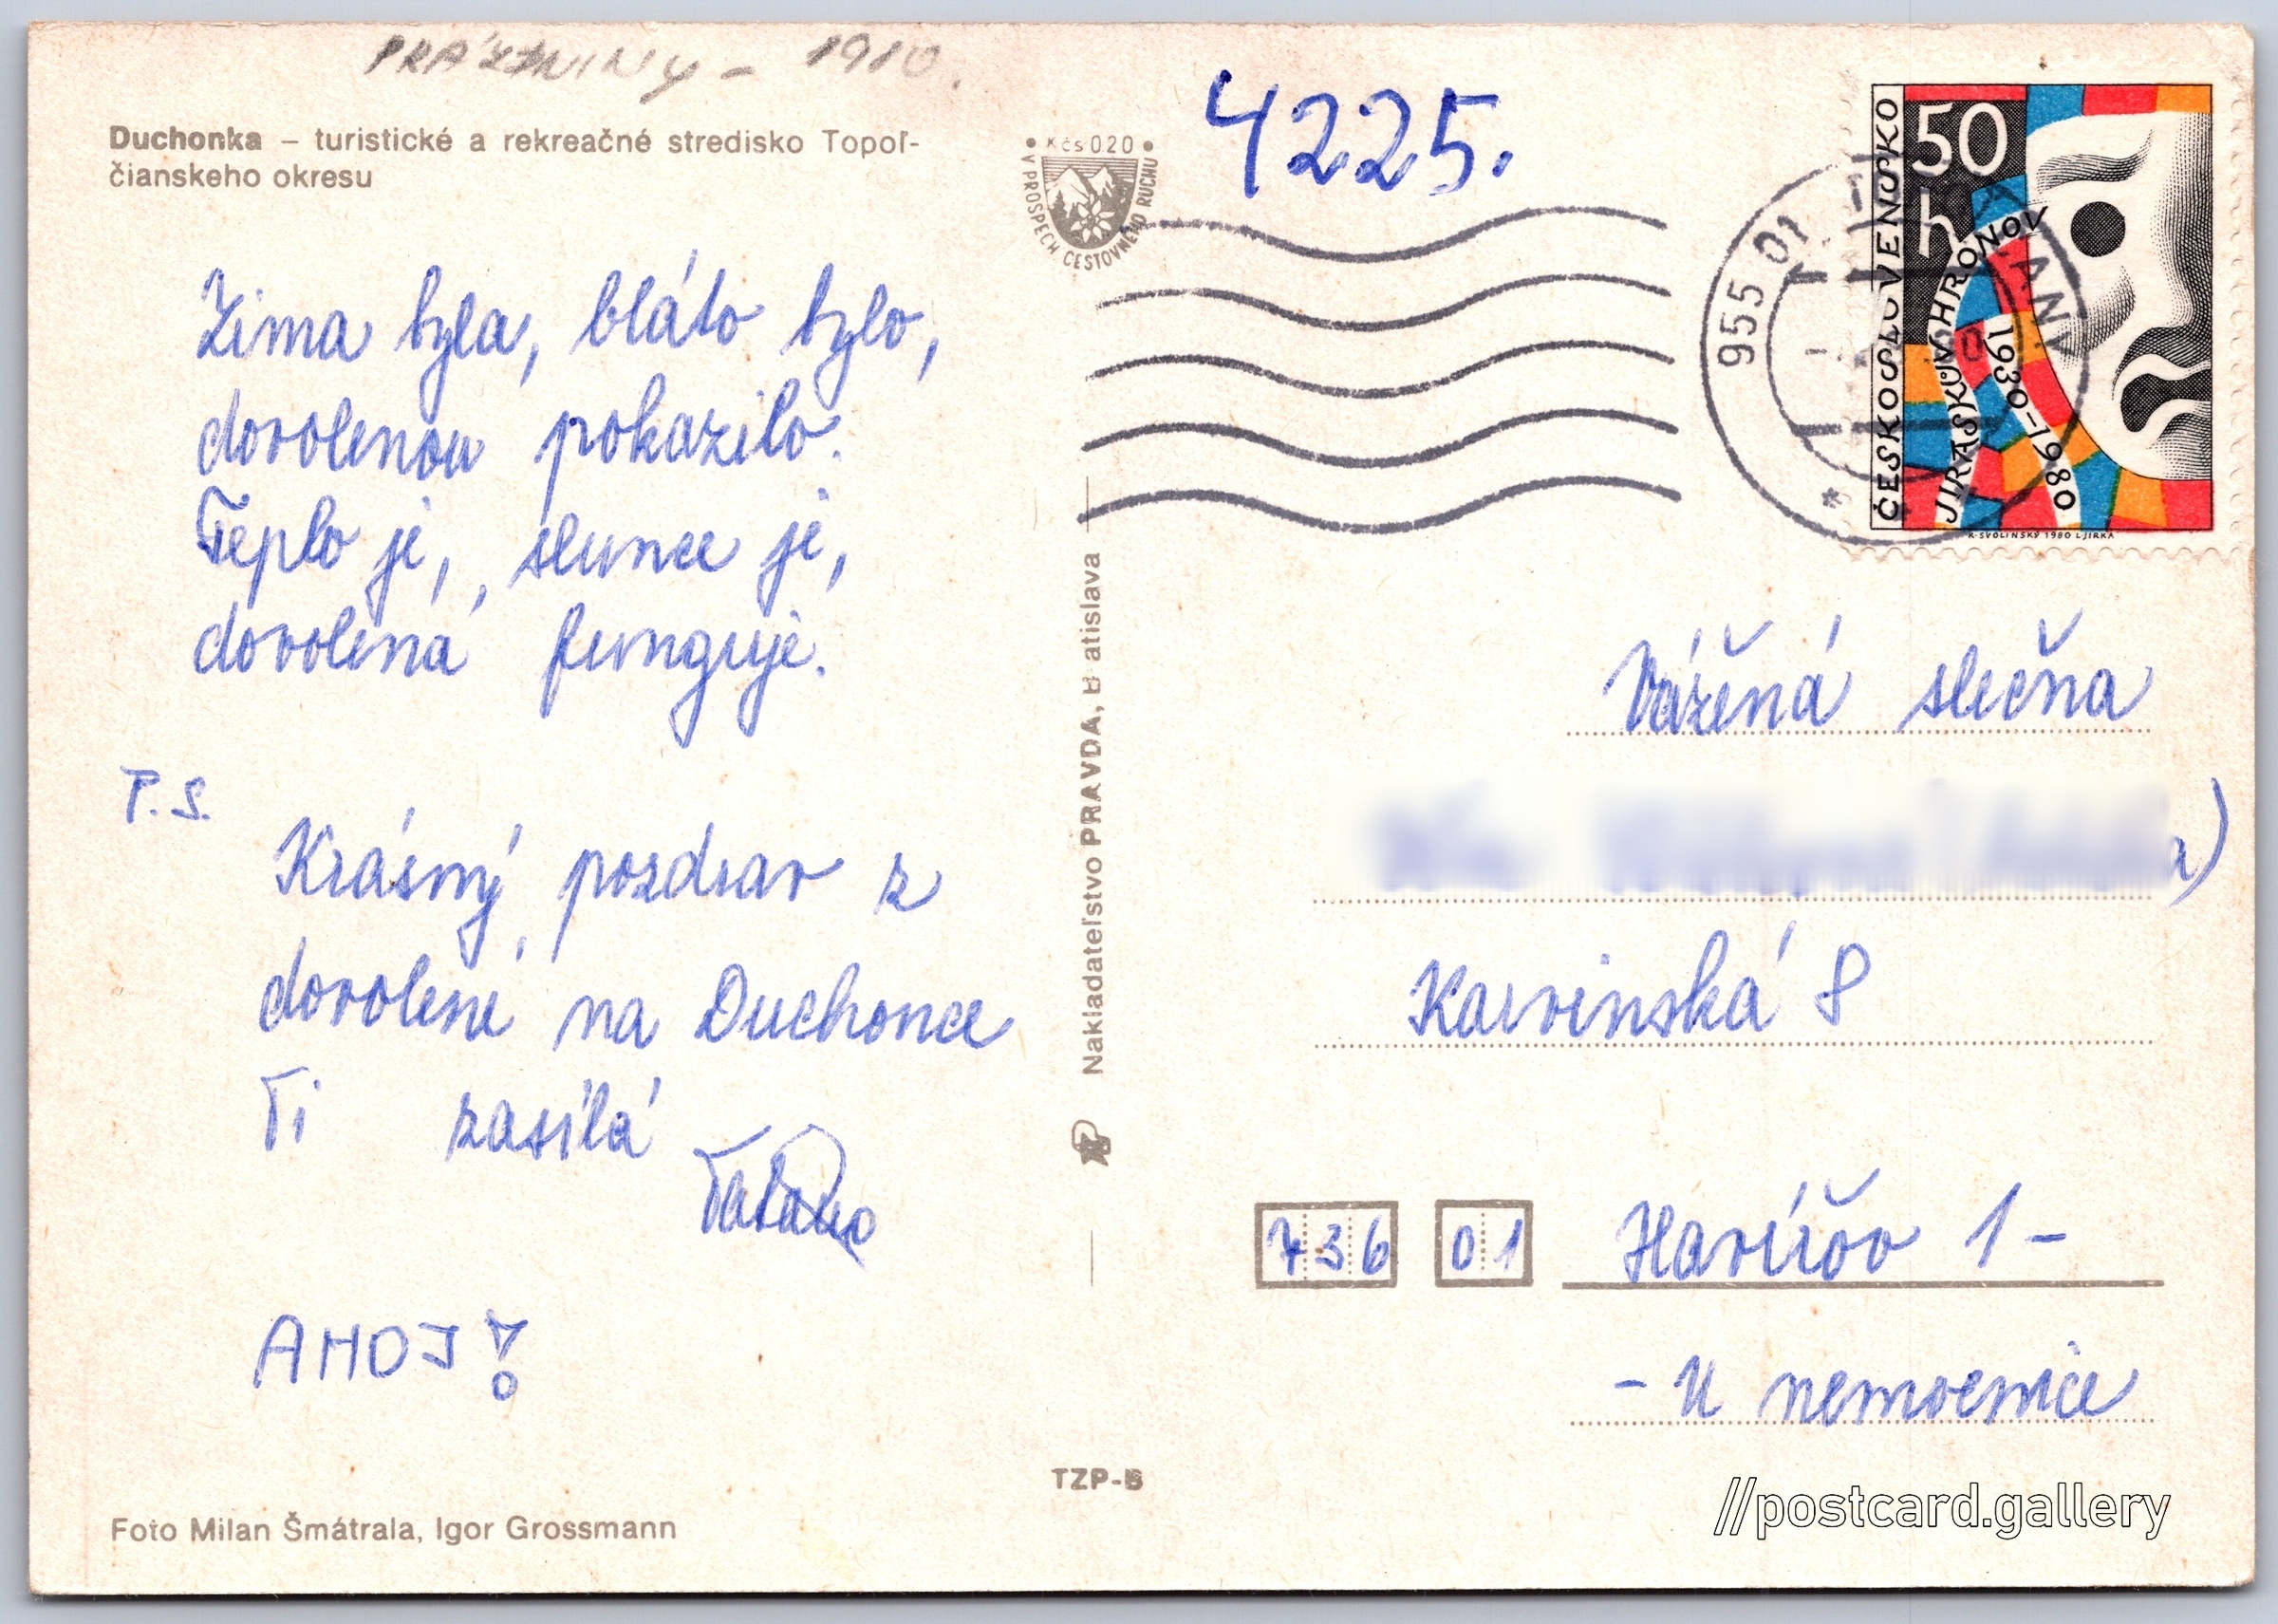 PRÁZDNINY – 1980.
Duchonka – turistické a rekreačné stredisko Topoľ-
čianskeho okresu
• Kčs 020 •
V PROSPECH CESTOVNÉHO RUCHU
4225.
Zima byla, bláto bylo,
dovolenou pokazilo.
Teplo je, slunce je,
dovolená funguje.
P.S.
Krásný pozdrav z
dovolené na Duchonce
Ti zasílá
AHOJ!
Foto Milan Šmátrala, Igor Grossmann
Nakladateľstvo PRAVDA, B atislava
TZP-B
955 01
*
ČESKOSLOVENSKO
50
h
JIRÁSKŮV HRONOV
1930–1980
K. SVOLINSKÝ 1980 L. JIRKA
Vážená slečna
a)
Karvinská 8
736 01 Havířov 1 –
– U nemocnice
//postcard.gallery